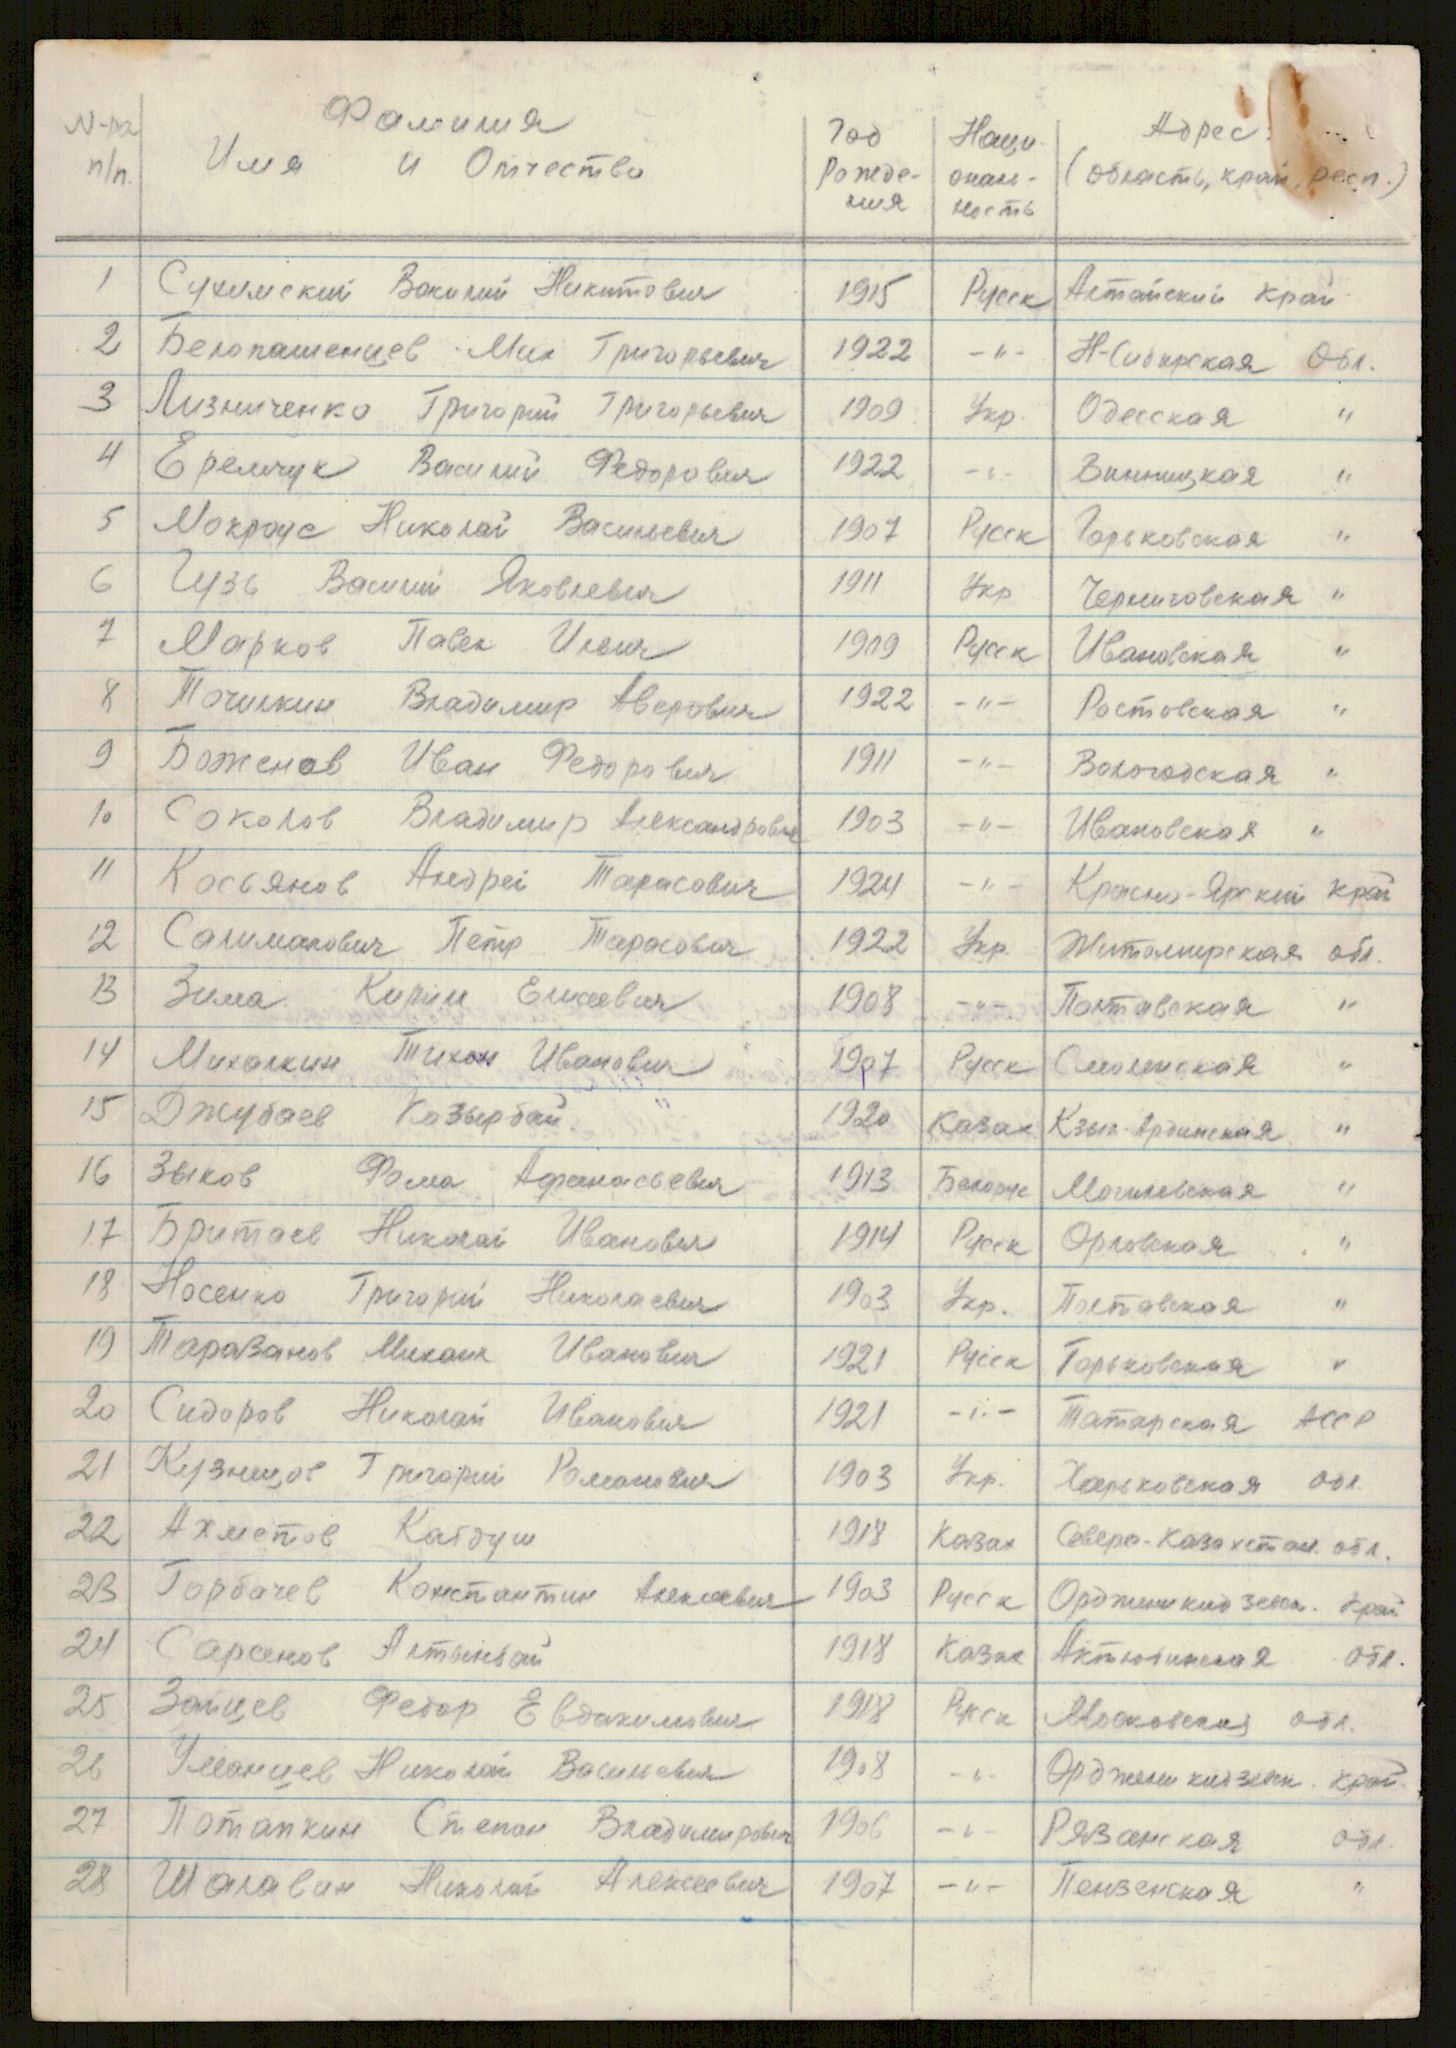 N-ра п/п. Фамилия Имя и Отчество Год рожде-ния Наци-ональ-ность Адрес: (область, край, респ.)
1 Сухимский Василий Никитович 1915 Русск Алтайский край
2 Белопашенцев Мих Григорьевич 1922 -"- Н-Сибирская Обл.
3 Лизниченко Григорий Григорьевич 1909 Укр. Одесская "
4 Еремчук Василий Федорович 1922 -"- Винницкая "
5 Мокроус Николай Васильевич 1907 Русск Горьковская "
6 Гузь Василий Яковлевич 1911 Укр Черниговская "
7 Марков Павел Ильич 1909 Русск Ивановская "
8 Точилкин Владимир Аверович 1922 -"- Ростовская "
9 Боженов Иван Федорович 1911 -"- Вологодская "
10 Соколов Владимир Александрович 1903 -"- Ивановская "
11 Касьянов Андрей Тарасович 1924 -"- Красно-Ярский край
12 Салиманович Петр Тарасович 1922 Укр. Житомирская обл.
13 Зима Кирилл Елисеевич 1908 -"- Полтавская "
14 Михалкин Тихон Иванович 1907 Русск Смоленская "
15 Джубаев Козырбай 1920 Казах Кзыл-Ардинская "
16 Зыков Фома Афанасьевич 1913 Белорус Могилевская "
17 Бритаев Николай Иванович 1914 Русск Орловская "
18 Носенко Григорий Николаевич 1903 Укр. Полтавская "
19 Таразанов Михаил Иванович 1921 Русск Горьковская "
20 Сидоров Николай Иванович 1921 -"- Татарская АССР
21 Кузнецов Григорий Романович 1903 Укр. Харьковская Обл.
22 Ахметов Кабдуш 1918 Казах Северо-Казахстан. обл.
23 Горбачев Константин Алексеевич 1903 Русск Орджоникидзеск. край
24 Сарсенов Алтынбай 1918 Казах Актюбинская обл.
25 Зайцев Федор Евдакимович 1918 Русск Московская обл.
26 Уманцев Николай Васильевич 1908 -"- Орджоникидзеск. край.
27 Потапкин Степан Владимирович 1906 -"- Рязанская обл.
28 Шалавин Николай Алексеевич 1907 -"- Пензенская "